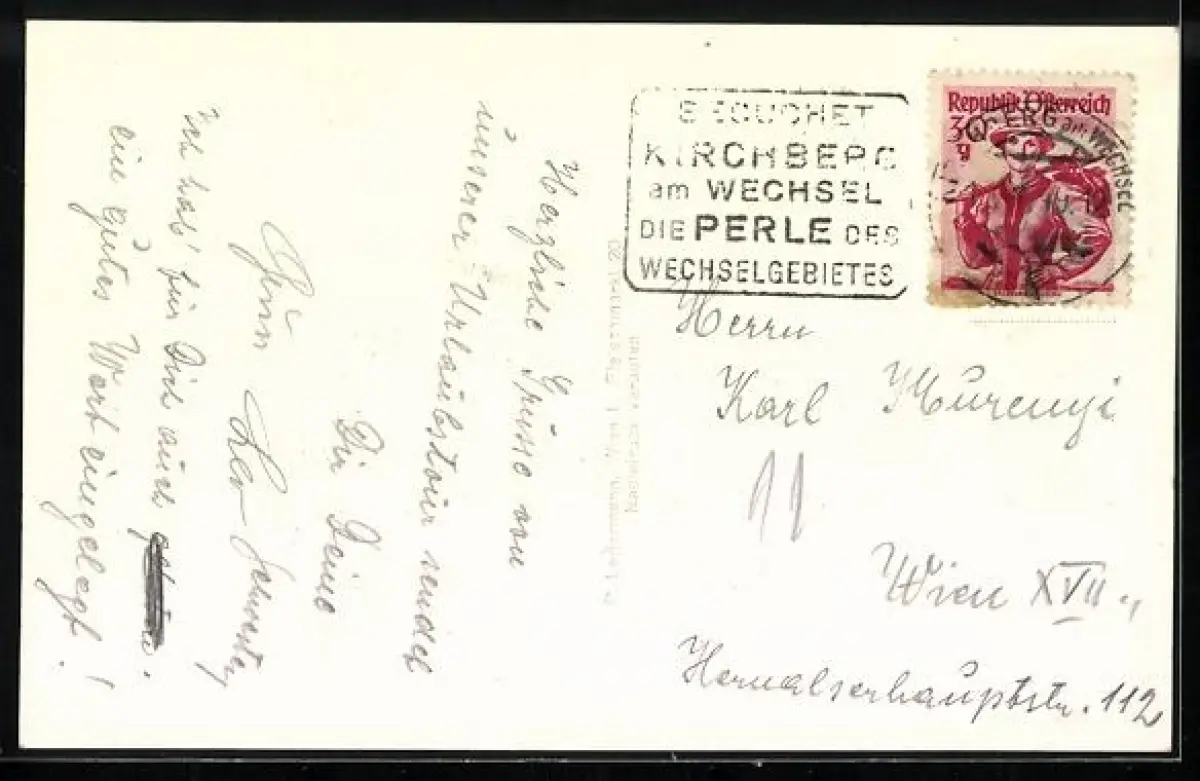 Herzliche Grüsse von
unserer Urlaubstour sendet
Dir Deine
Schwester
Ich hab' für Dich auch
ein gutes Wort eingelegt!
BESUCHET
KIRCHBERG
am WECHSEL
DIE PERLE DES
WECHSELGEBIETES
Republik Österreich
30 g
BERG am WECHSEL
Herrn
Karl Murenyi
Wien XVII.,
Hernalserhauptstr. 112